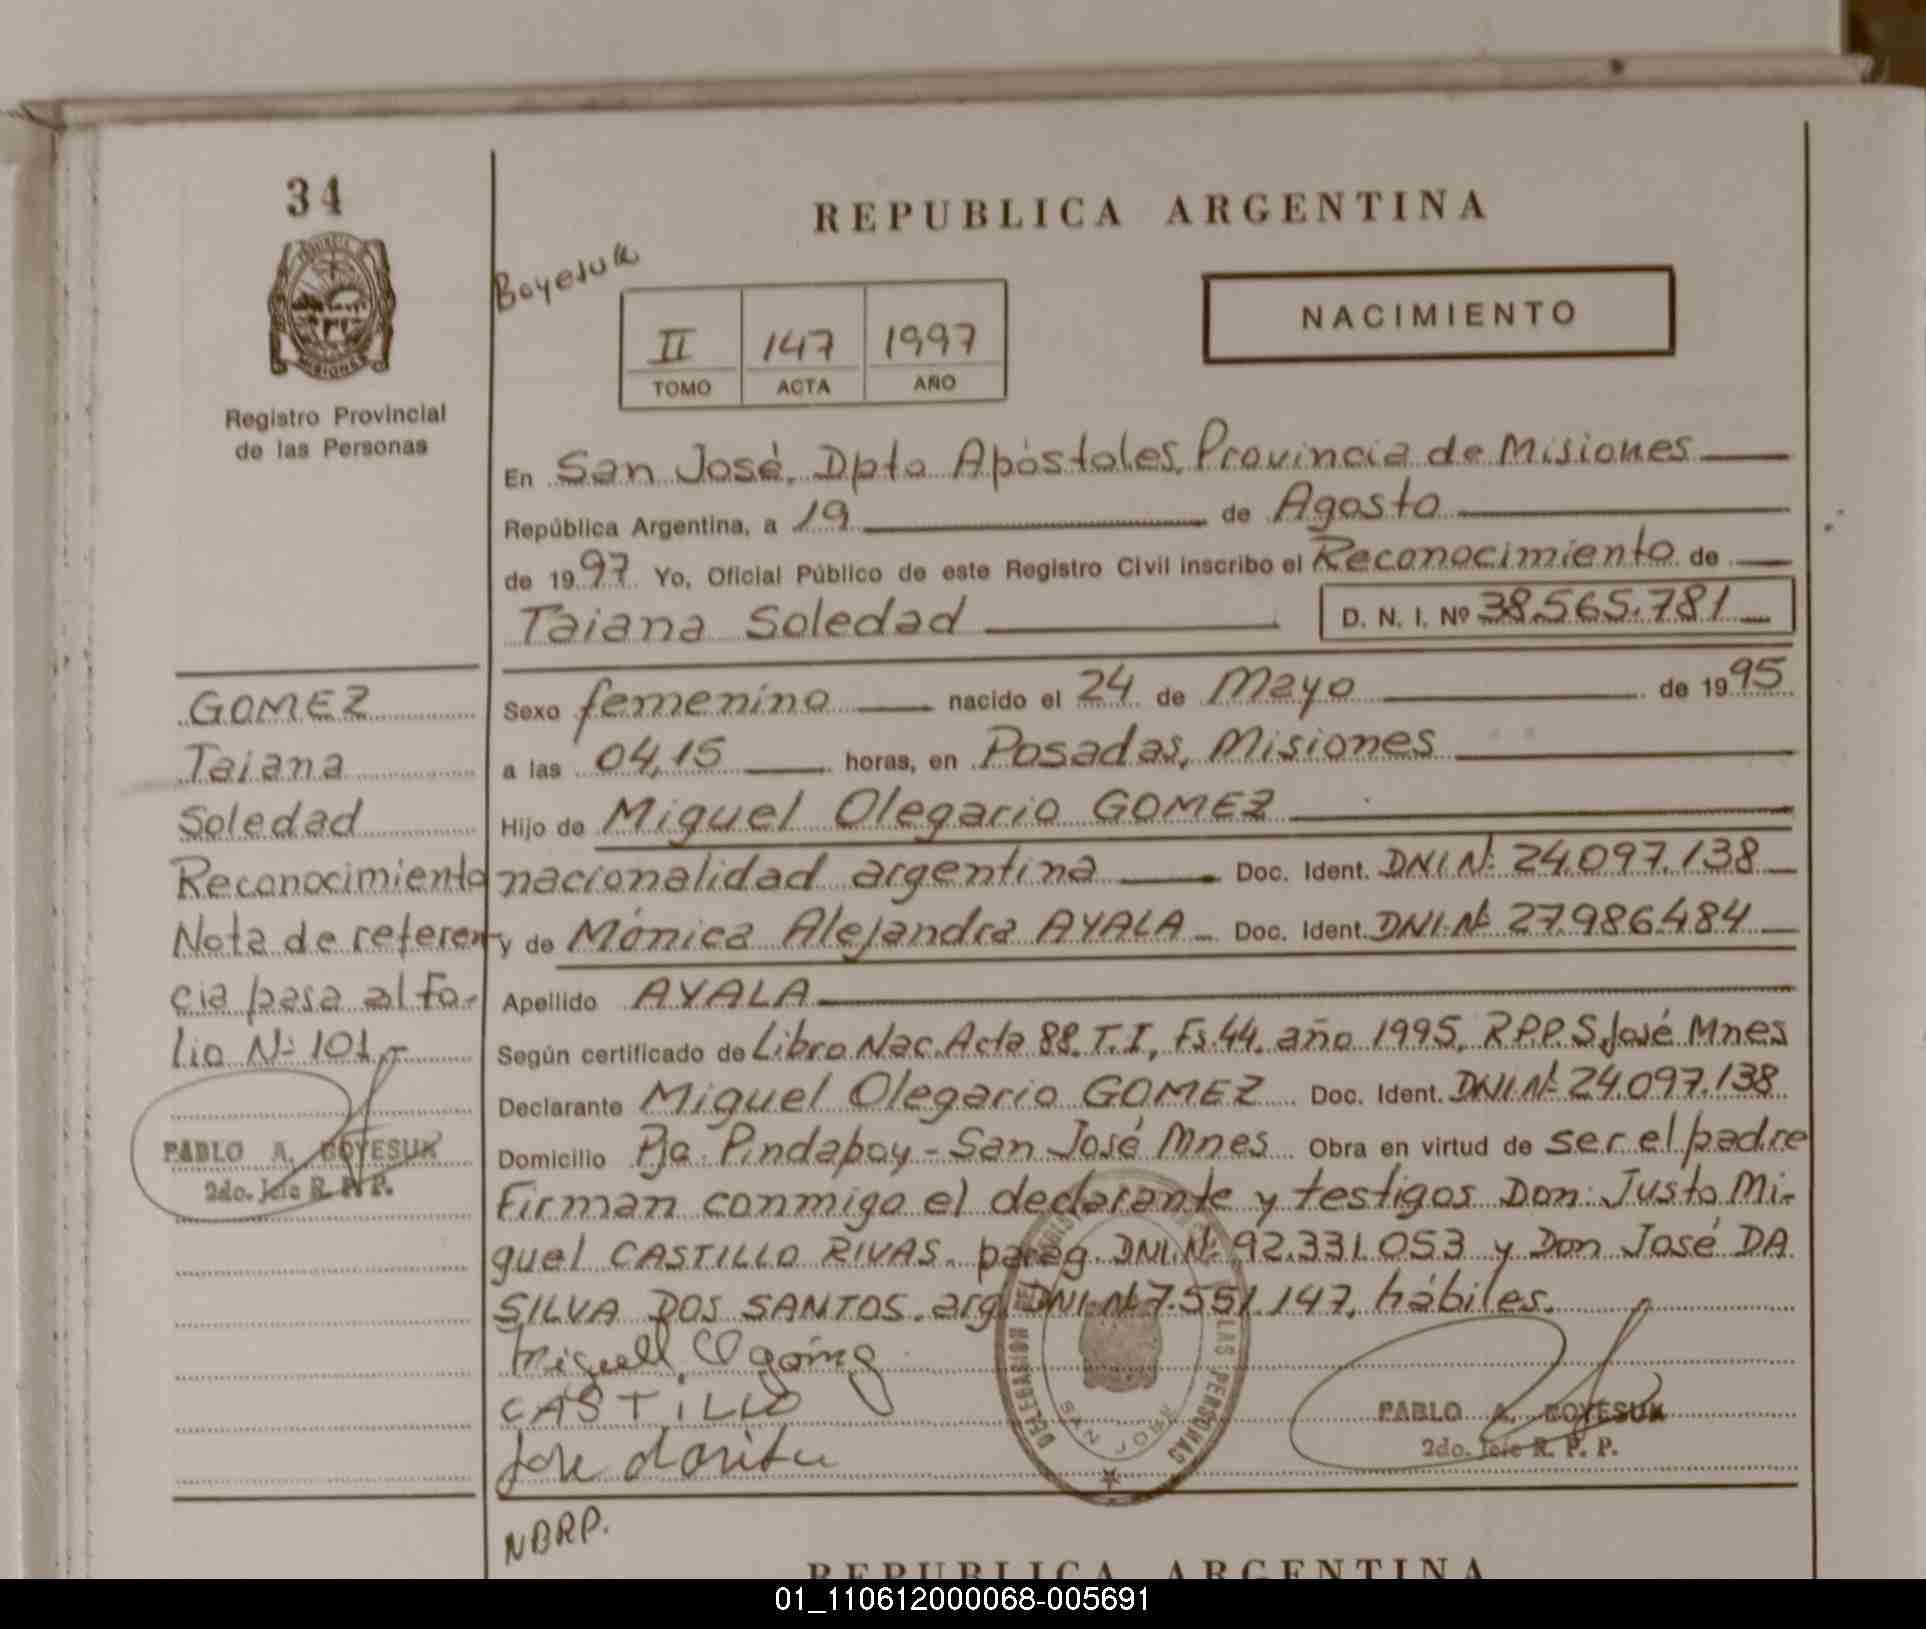 34
REPUBLICA ARGENTINA
Boyesuk
NACIMIENTO
II 147 1997
TOMO ACTA AÑO
Registro Provincial
de las Personas
En San José, Dpto Apóstoles, Provincia de Misiones
República Argentina, a 19 de Agosto
de 1997 Yo, Oficial Público de este Registro Civil inscribo el Reconocimiento de
Taiana Soledad D. N. I. Nº 38.565.781
GOMEZ
Taiana
Soledad
Reconocimiento
Nota de referen-
cia pasa al fo-
lio Nº 101.-
PABLO A. BOYESUK
2do. Jefe R. P. P.
Sexo femenino nacido el 24 de Mayo de 1995
a las 04,15 horas, en Posadas, Misiones
Hijo de Miguel Olegario GOMEZ
nacionalidad argentina Doc. Ident. DNI.Nº 24.097.138
y de Mónica Alejandra AYALA - Doc. Ident. DNI.Nº 27.986.484
Apellido AYALA
Según certificado de Libro Nac. Acta 88. T. I, Fs. 44. año 1995, R.P.P. S. José Mnes
Declarante Miguel Olegario GOMEZ Doc. Ident. DNI.Nº 24.097.138
Domicilio Pje. Pindapoy - San José Mnes Obra en virtud de ser el padre
Firman conmigo el declarante y testigos Don: Justo Mi-
guel CASTILLO RIVAS. parag. DNI.Nº 92.331.053 y Don José DA
SILVA DOS SANTOS. arg. DNI.Nº 7.551.147, hábiles.
Miguel O gómez
CASTILLO
José
DELEGACION REGISTRO DE LAS PERSONAS
SAN JOSE
PABLO A. BOYESUK
2do. Jefe R. P. P.
NBRP.
REPUBLICA ARGENTINA
01_110612000068-005691